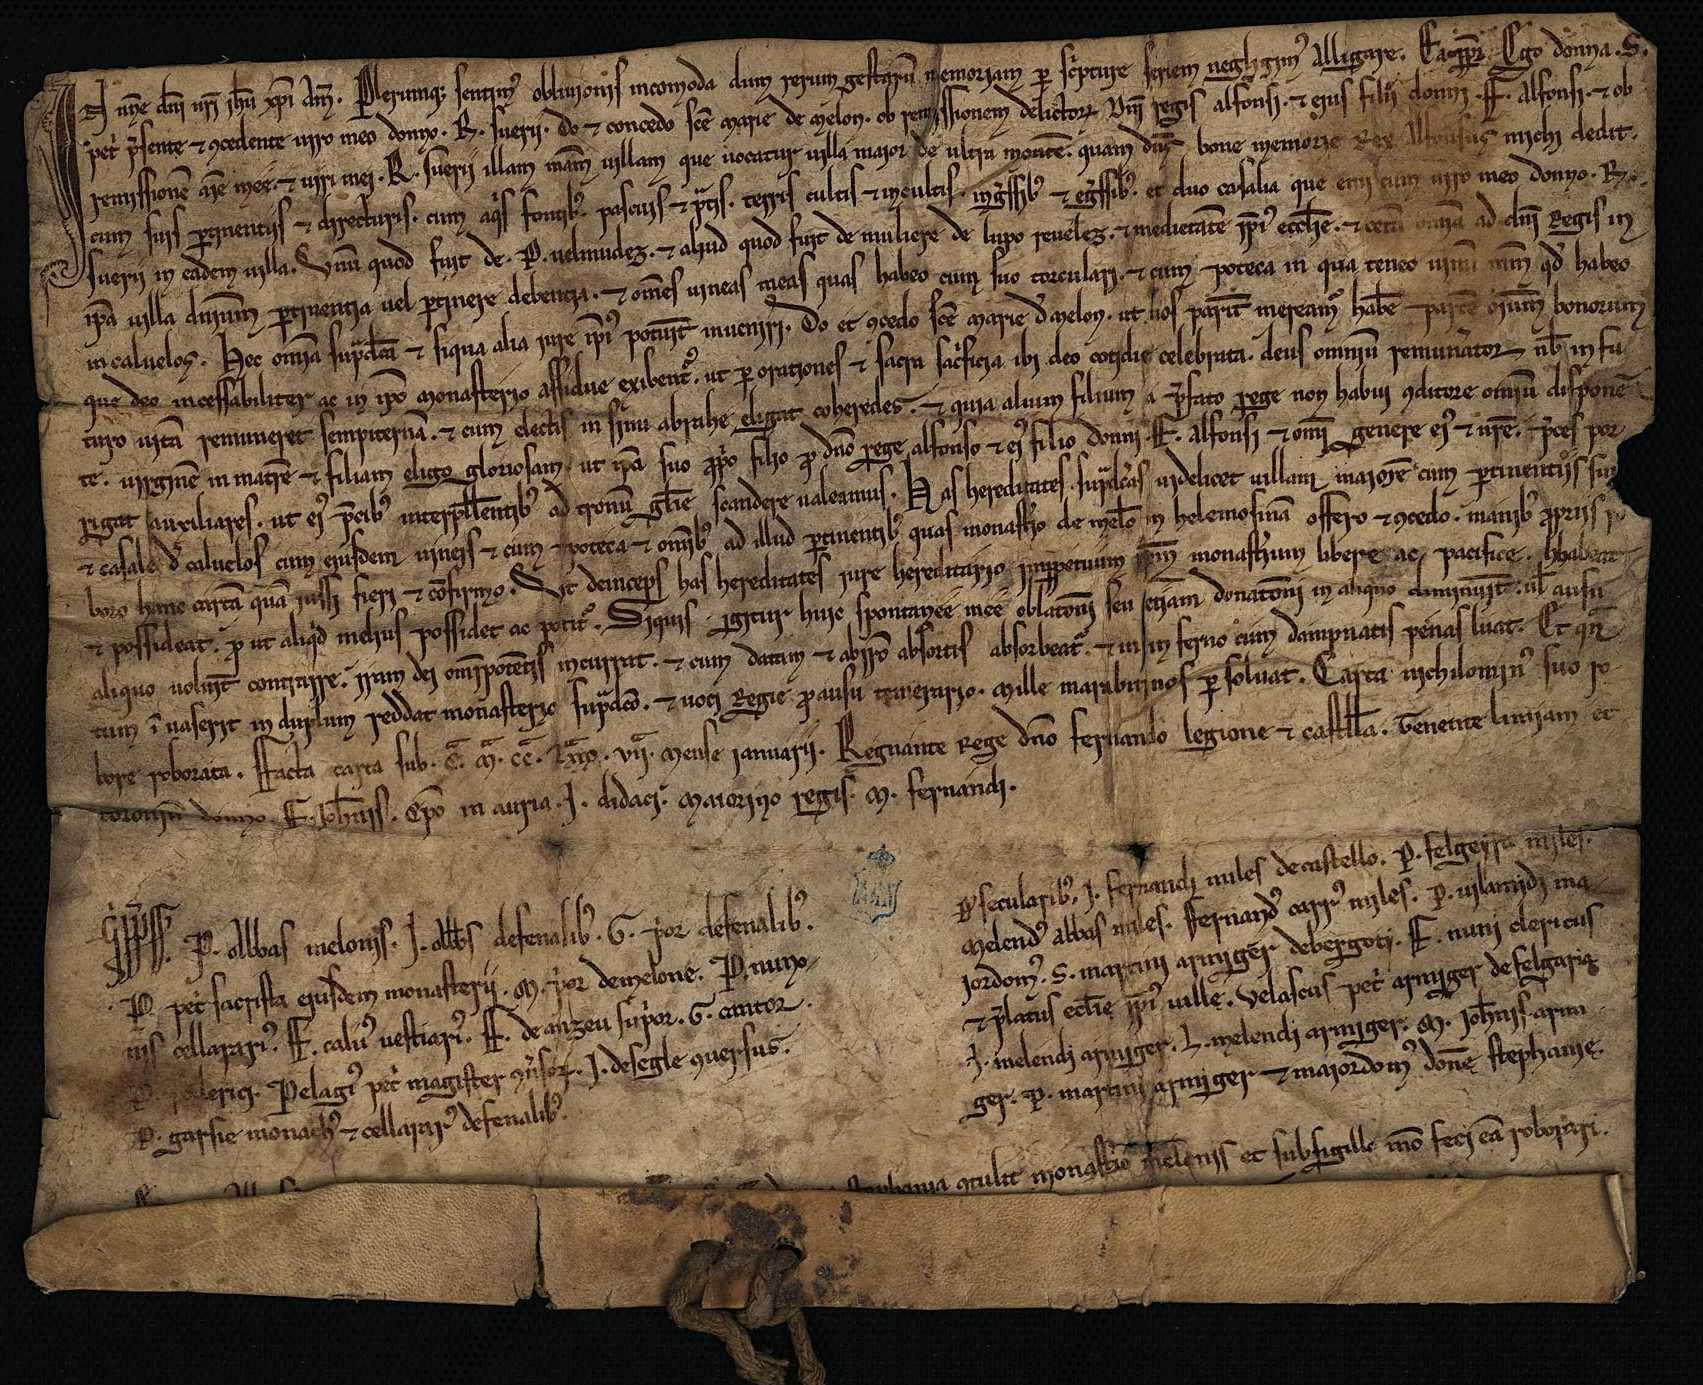 In nñe dñi nri ihu xpi Am̃. Plerumq; sentim⁹ obliuionis incomoda dum rerum gestarũ memoriam per sc̃pture seriem neglygim⁹ alligare. Eaꝓpt̃ Ego donna . S.
pet̃ p̃sente & ꝯcedente uiro meo donno . R . suerii . do & concedo sc̃e marie de melon . ob remissionem delictoꝝ dñi regis alfonsi . & ejus filii donni . F . alfonsi . & ob
remissionẽ aĩe meę . & uiri mei . R . suerii illam meã uillam que uocatur uilla maior de ultra montẽ . quam dñs bone memorie rex Alfonsus michi dedit .
cum suis ꝑtinentiis & directuris . cum aq̃s fontib⁹ . pascuis & p̃tis . terris cultis & incultis . ing̃ssib⁹ & eg̃ssib⁹ . et duo casalia que emi cum uiro meo donno . R .
suerii in eadem uilla . Vnũ quod fuit de . P . uelmudez . & aliud quod fuit de muliere de lupo reuelez . & medietatẽ ip̃i⁹ eccl̃ie . & cetã omĩa ad dñi Regis in
ip̃a uilla dñium ꝑtinentia uel ꝑtinere debencia . & om̃es uineas meas quas habeo cum suo torculari . & cum apoteca in qua teneo uinũ meũ qd̃ habeo
in caluelos . Hec omĩa sup̃dc̃a & siqua alia iure ip̃i⁹ potuit̃ inueniri . do et ꝯcedo sc̃e marie d̃ melon . ut nos parit̃ mereamr̃ habẽ partẽ oĩum bonorum
que deo incessabiliter ac in ipõ monasterio assidue exibent⁹ . ut ꝑ orationes & sacra sac̃ficia ibi deo cotidie celebrata . deus omniũ remun̄ator nõb in fu
turo uitã remuneret sempiternã . & cum electis in sinu abrahe eligat coheredes . & quia alium filium a p̃fato rege non habui ꝯditore omniũ disponẽ
te . uirginẽ in matrẽ & filiam eligo gloriosam . ut ip̃a suo ꝓp̃o filio ꝓ dño rege alfonso & ei⁹ filio donni . F . alfonsi & omi genere ei⁹ & nrẽ . p̃ces por
rigat auxiliares . ut ei⁹ p̃cib⁹ interpll̃entib⁹ ad tronũ gl̃ie scandere ualeamus . Has hereditates . sup̃dc̃as uidelicet uillam maiorẽ cum ꝑtinentiis sui
& casale d̃ caluelos cum eiusdem uineis & cum apoteca & omib⁹ ad illud ꝑtinentib⁹ quas monastr̃io de melõ in helemosinã offero & ꝯcedo . manib⁹ ꝓpriis ro
boro hanc cartã quã iussi fieri & cõfirmo . Vt deinceps has hereditates iure hereditario inꝑpetuum monastr̃ium libere ac pacifice . habeat
& possideat . ꝓ ut aliqd̃ melius possidet ac potit⁹ . Siquis igitur huic spontanee meę oblatõni seu etiam donatõni in aliquo diminuit̃ . ul̃ ausu
aliquo uoluit̃ contraire . iram dei omĩpotẽtis incurrat . & cum datam & abirõ absortis absorbeat⁹ . & in inferno cum dampnatis penas luat . Et qñ
tum ĩuaserit in duplum reddat monasterio sup̃dcõ . & uoci Regie ꝓ ausu temerario . mille marabitinos ꝑsoluat . Carta nichilomin⁹ suo ro
bore roborata . Facta carta sub . Ẽ . M . CC . Lxx . vii . Mense ianuarii . Regnante Rege dño fernando legione & castell̃a . Tenente limiam et
toronũ donno . F . Johñis . Epõ in auria . J . didaci . Maiorino regis . M . fernandi .
P . abbas melonis . J . abb̃s defenalib⁹ . G . p̃or defenalib⁹ .
P . pet̃ sacrista eiusdem monasterii . M . p̃or demelone . P . nuno
nis cellarari⁹ . F . calu⁹ uestiari⁹ . F . de anzeu sup̃or . G . cantor .
P . roderici . Pelagi⁹ pet̃ magister ꝯũsoꝝ . J . desegle ꝯuersus .
P . garsie monach⁹ & cellarar⁹ defenalib⁹ .
De secularib⁹ . J . fernandi miles decastello . P . felgeira miles .
Melend⁹ abbas miles . Fernand⁹ carr⁹ miles . P . uilamidi ma
iordom⁹ . S . martini armiger debergoti . F . nuni clericus
& p̃latus ecl̃ie ip̃i⁹ uille . Velascus pet̃ armiger defelgaria
J . melendi armiger . L . melendi armiger . M . Johñis armi
ger . P . martini armiger & maiordom⁹ donẽ stephanie .
stephania ꝯtulit monastr̃io melonis et subsigillo meõ feci eã roborari .